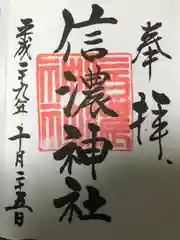 奉拝
信濃神社
平成二十九年十月二十五日